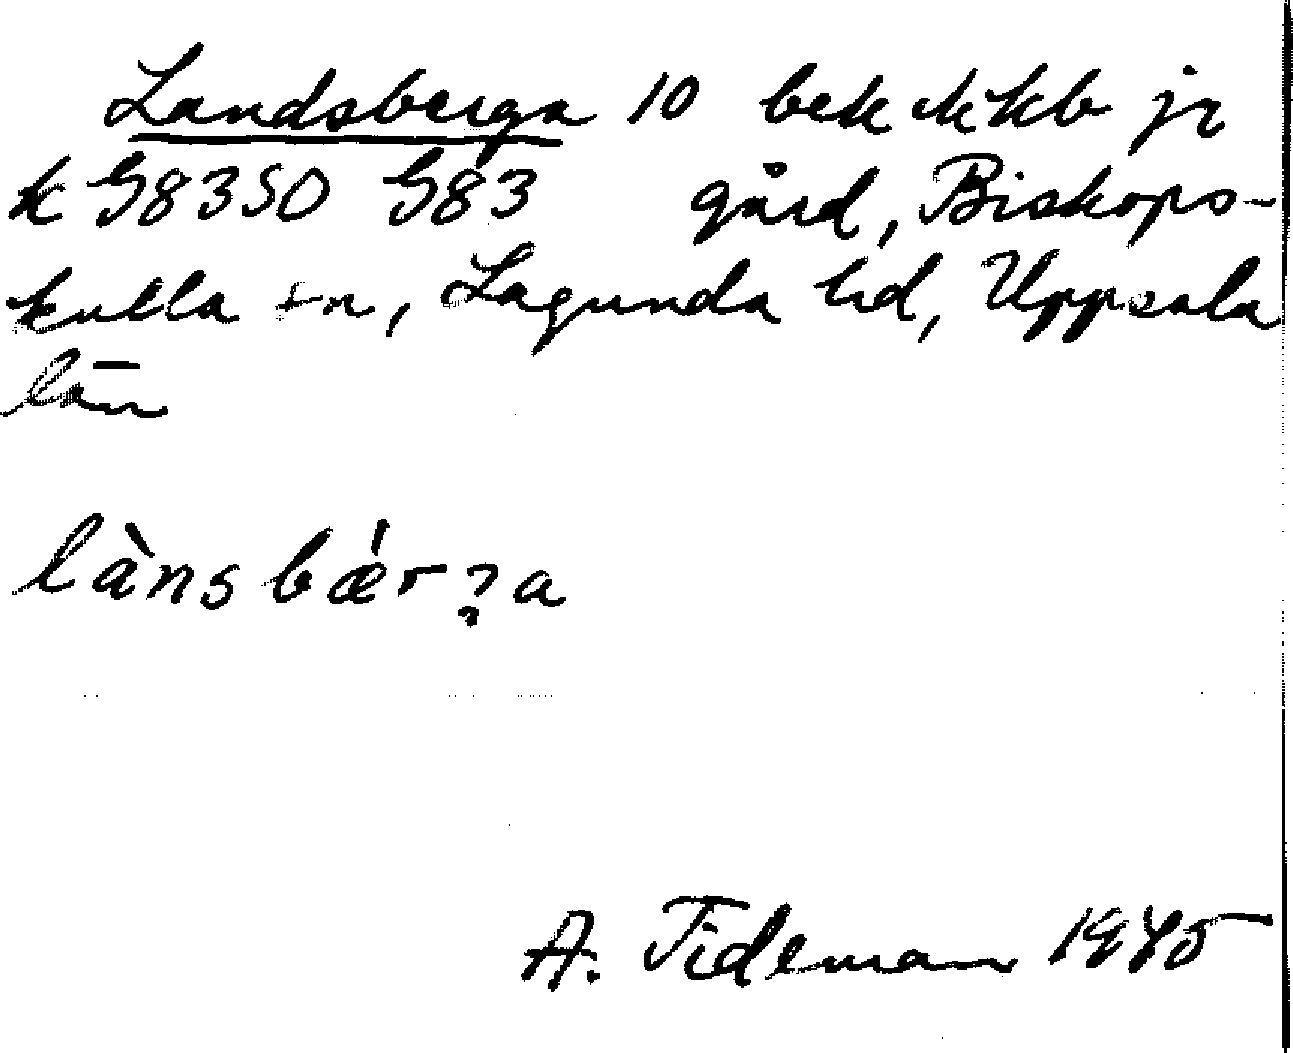 Landsberga 10 bek ekkb jr
k G8350 G83 gård, Biskops-
kulla sn, Lagunda hd, Uppsala
län
lànsbǽr?a
A. Tideman 1945